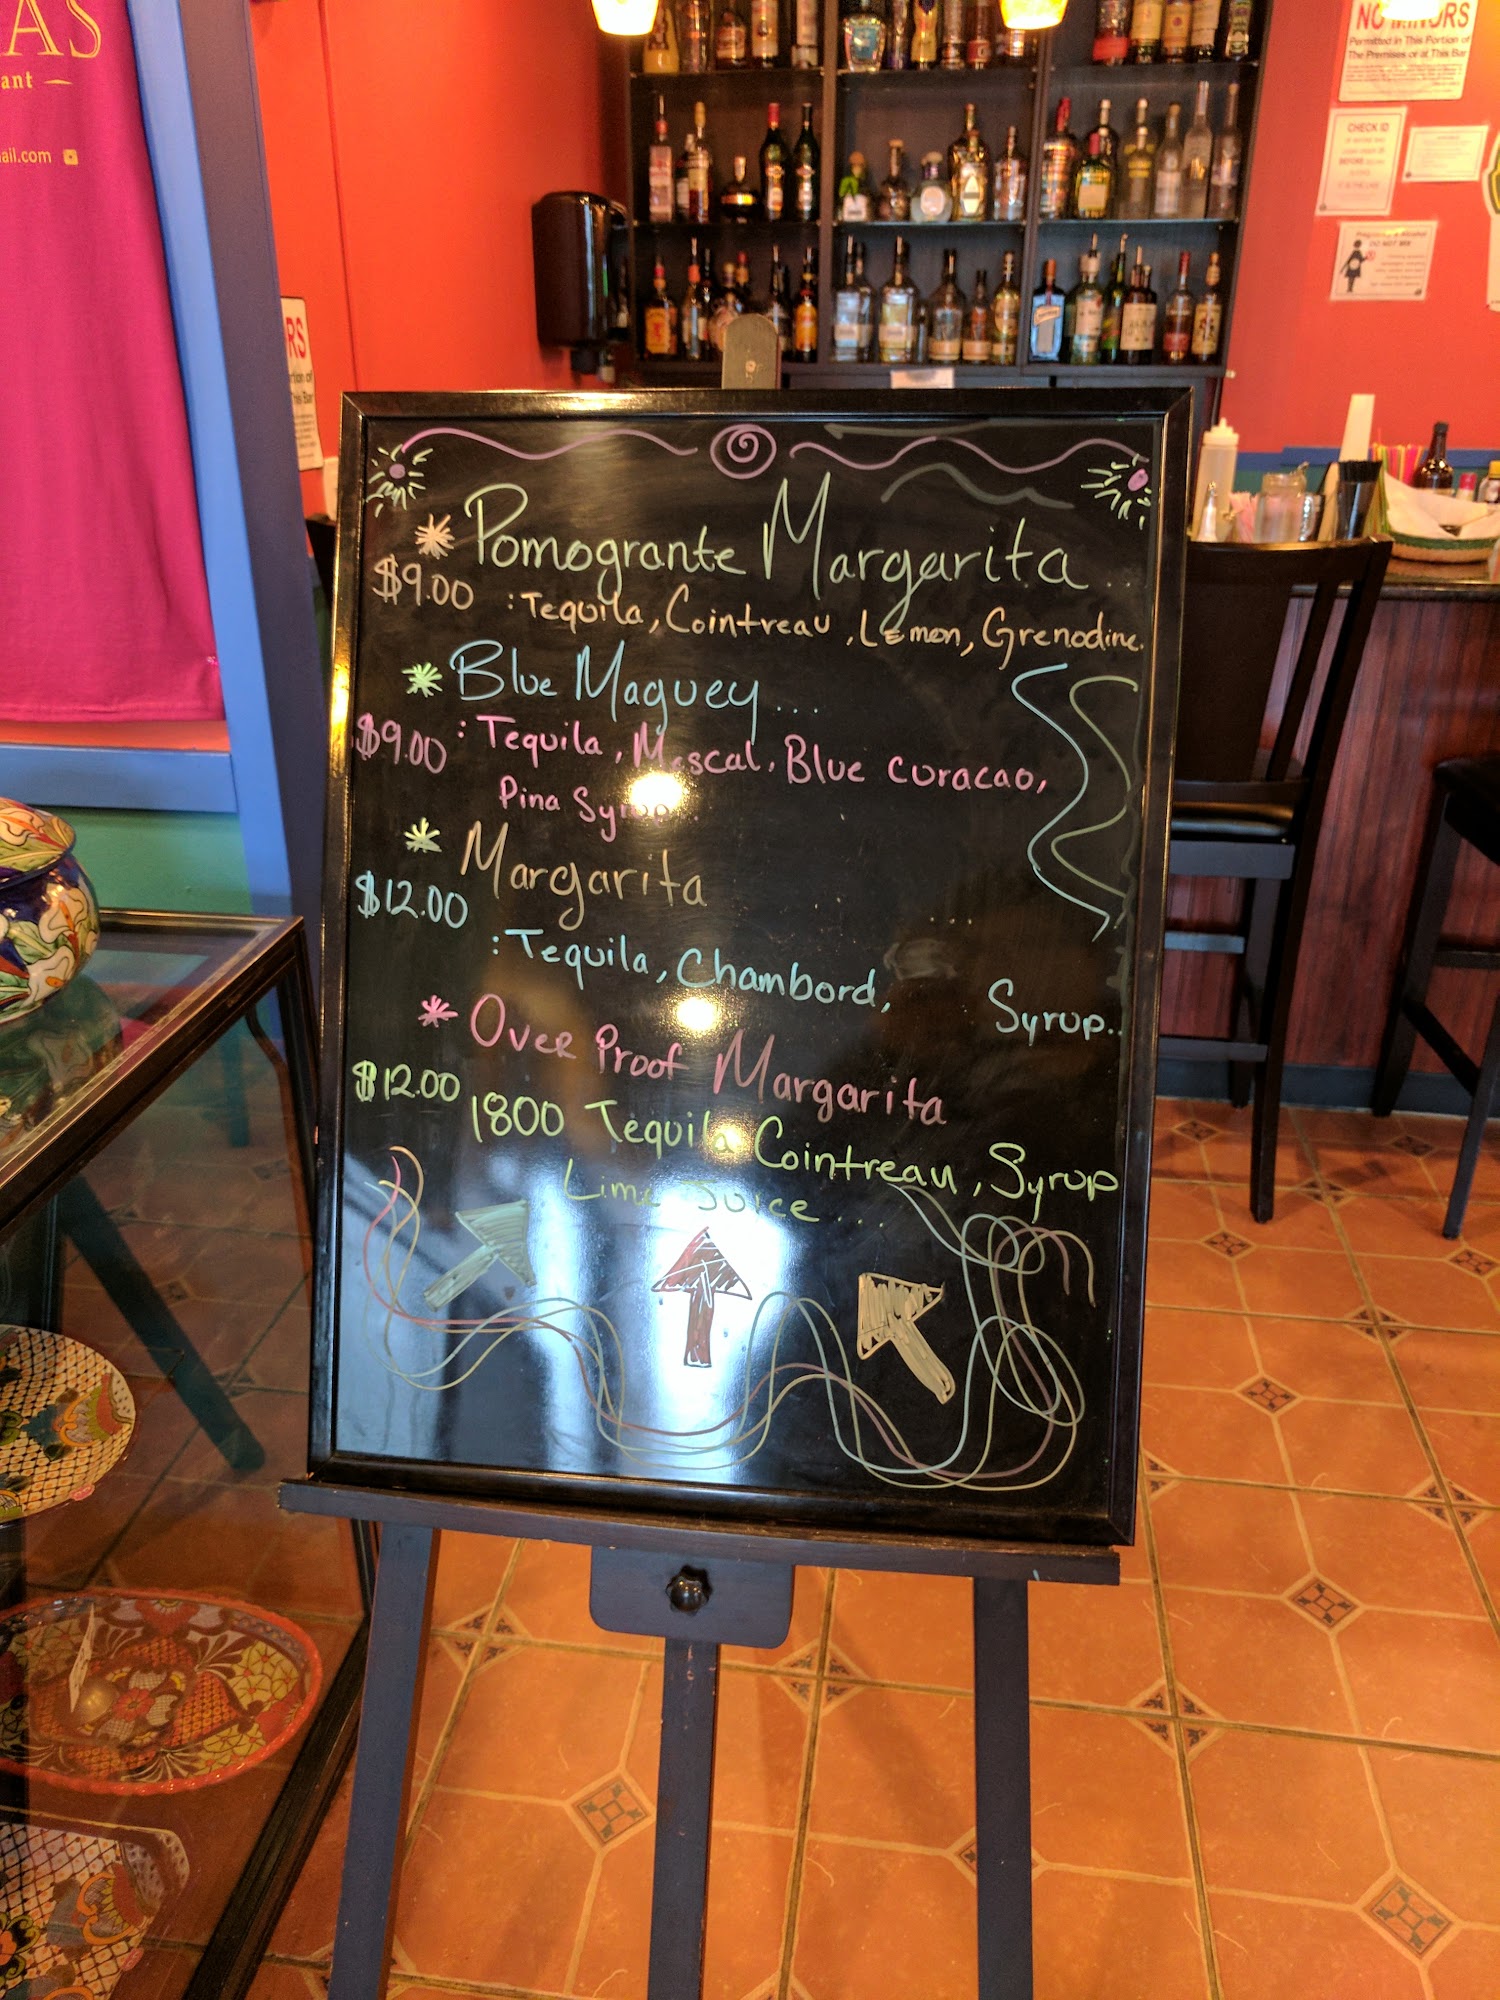 AS
ant
ail.com
NO MINORS
Permitted in This Portion of
The Premises or at This Bar
CHECK ID
BEFORE
Alcohol
DO NOT MIX
RS
tion of
his Bar
Pomogrante Margarita...
$9.00 :Tequila, Cointreau, Lemon, Grenodine.
Blue Maguey...
$9.00 :Tequila, Mescal, Blue curacao,
Pina Syrup..
Margarita ....
$12.00
:Tequila, Chambord, Syrup..
Over Proof Margarita
$12.00 1800 Tequila Cointreau, Syrup
Lime Juice....